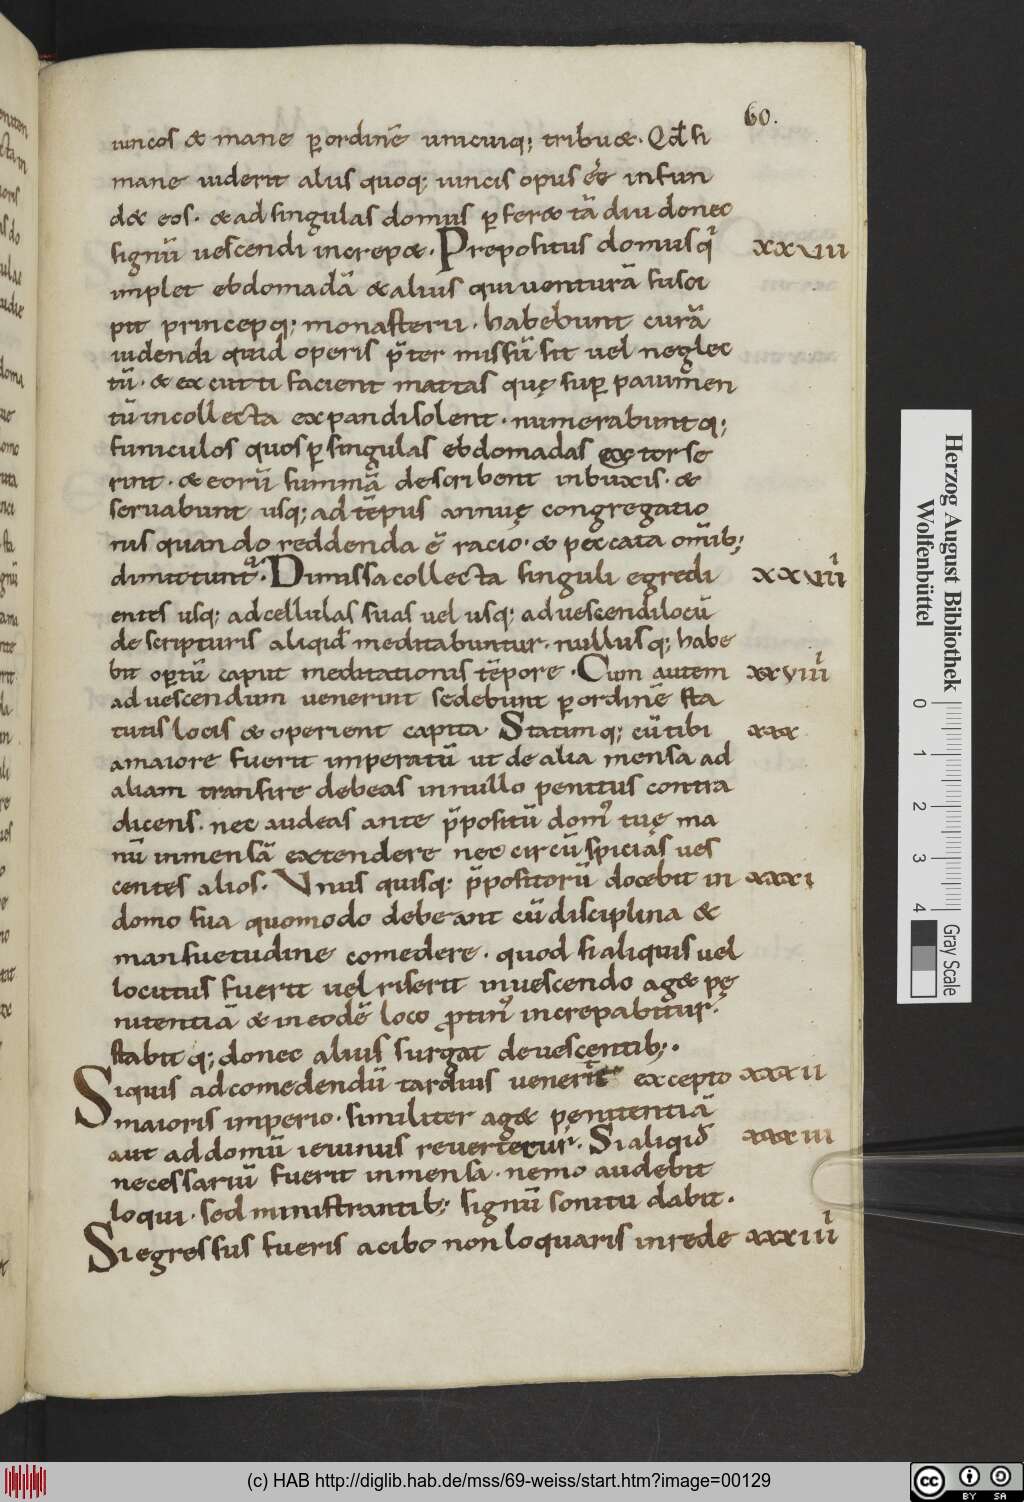 60.
iuncos & mane p̱ ordinē unicuiq; tribu&. Qd̄ si
mane uiderit alus quoq; iuncis opus eē̓ infun
d& eos. & ad singulas domus p̱ fer& tā diu donec
signū uescendi increp&. Prepositus domus q̓ xxviii
implet ebdomadā & alius qui uenturā susci
pit princepq; monasterii. habebunt curā
uidendi quid operis p̄ter missū sit uel neglec
tū. & excutti facient mattas quę sup̱ pauimen
tū in collecta expandi solent. numerabuntq;
funiculos quos p̱ singulas ebdomadas extorse
rint. & eorū summā describent in buxis. &
seruabunt usq; ad tēpus annuę congregatio
nis quando reddenda ē racio. & peccata omīb;
dimittunt᷑. Dimissa collecta singuli egredi xxviiii̓
entes usq; ad cellulas suas uel usq; ad uescendi locū
de scripturis aliqid̓ meditabuntur. nullusq; habe
bit op̱tū caput meditationis tēpore. Cum autem xxviiii̓
ad uescendum uenerint sedebunt p̱ ordinē sta
tutis locis & operient capita. Statimq; cū tibi xxx
a maiore fuerit imperatū ut de alia mensa ad
aliam transire debeas in nullo penitus contra
dicens. nec audeas ante p̄positū dom̓ tuę ma
nū in mensā extendere nec circūspicias ues
centes alios. Unus quisq; p̄positorū docebit in xxxi
domo sua quomodo debeant cū disciplina &
mansuetudine comedere. quod si aliquis uel
locutus fuerit uel riserit in uescendo ag& pę
nitentiā & in eodē loco ꝓtin̓ increpabitur.
stabitq; donec alius surgat de uescentib;.
Siquis ad comedendū tardius uenerit excepto xxxii
maioris imperio. similiter ag& penitentiā
aut ad domū ieiunus reuertetur. Si aliqid̓ xxxiii
necessariū fuerit in mensa. nemo audebit
loqui. sed ministrantib; signū sonitu dabit.
Si egressus fueris a cibo non loquaris in rede xxxiiii̓
Herzog August Bibliothek
Wolfenbüttel
0 1 2 3 4
Gray Scale
(c) HAB http://diglib.hab.de/mss/69-weiss/start.htm?image=00129
cc BY SA